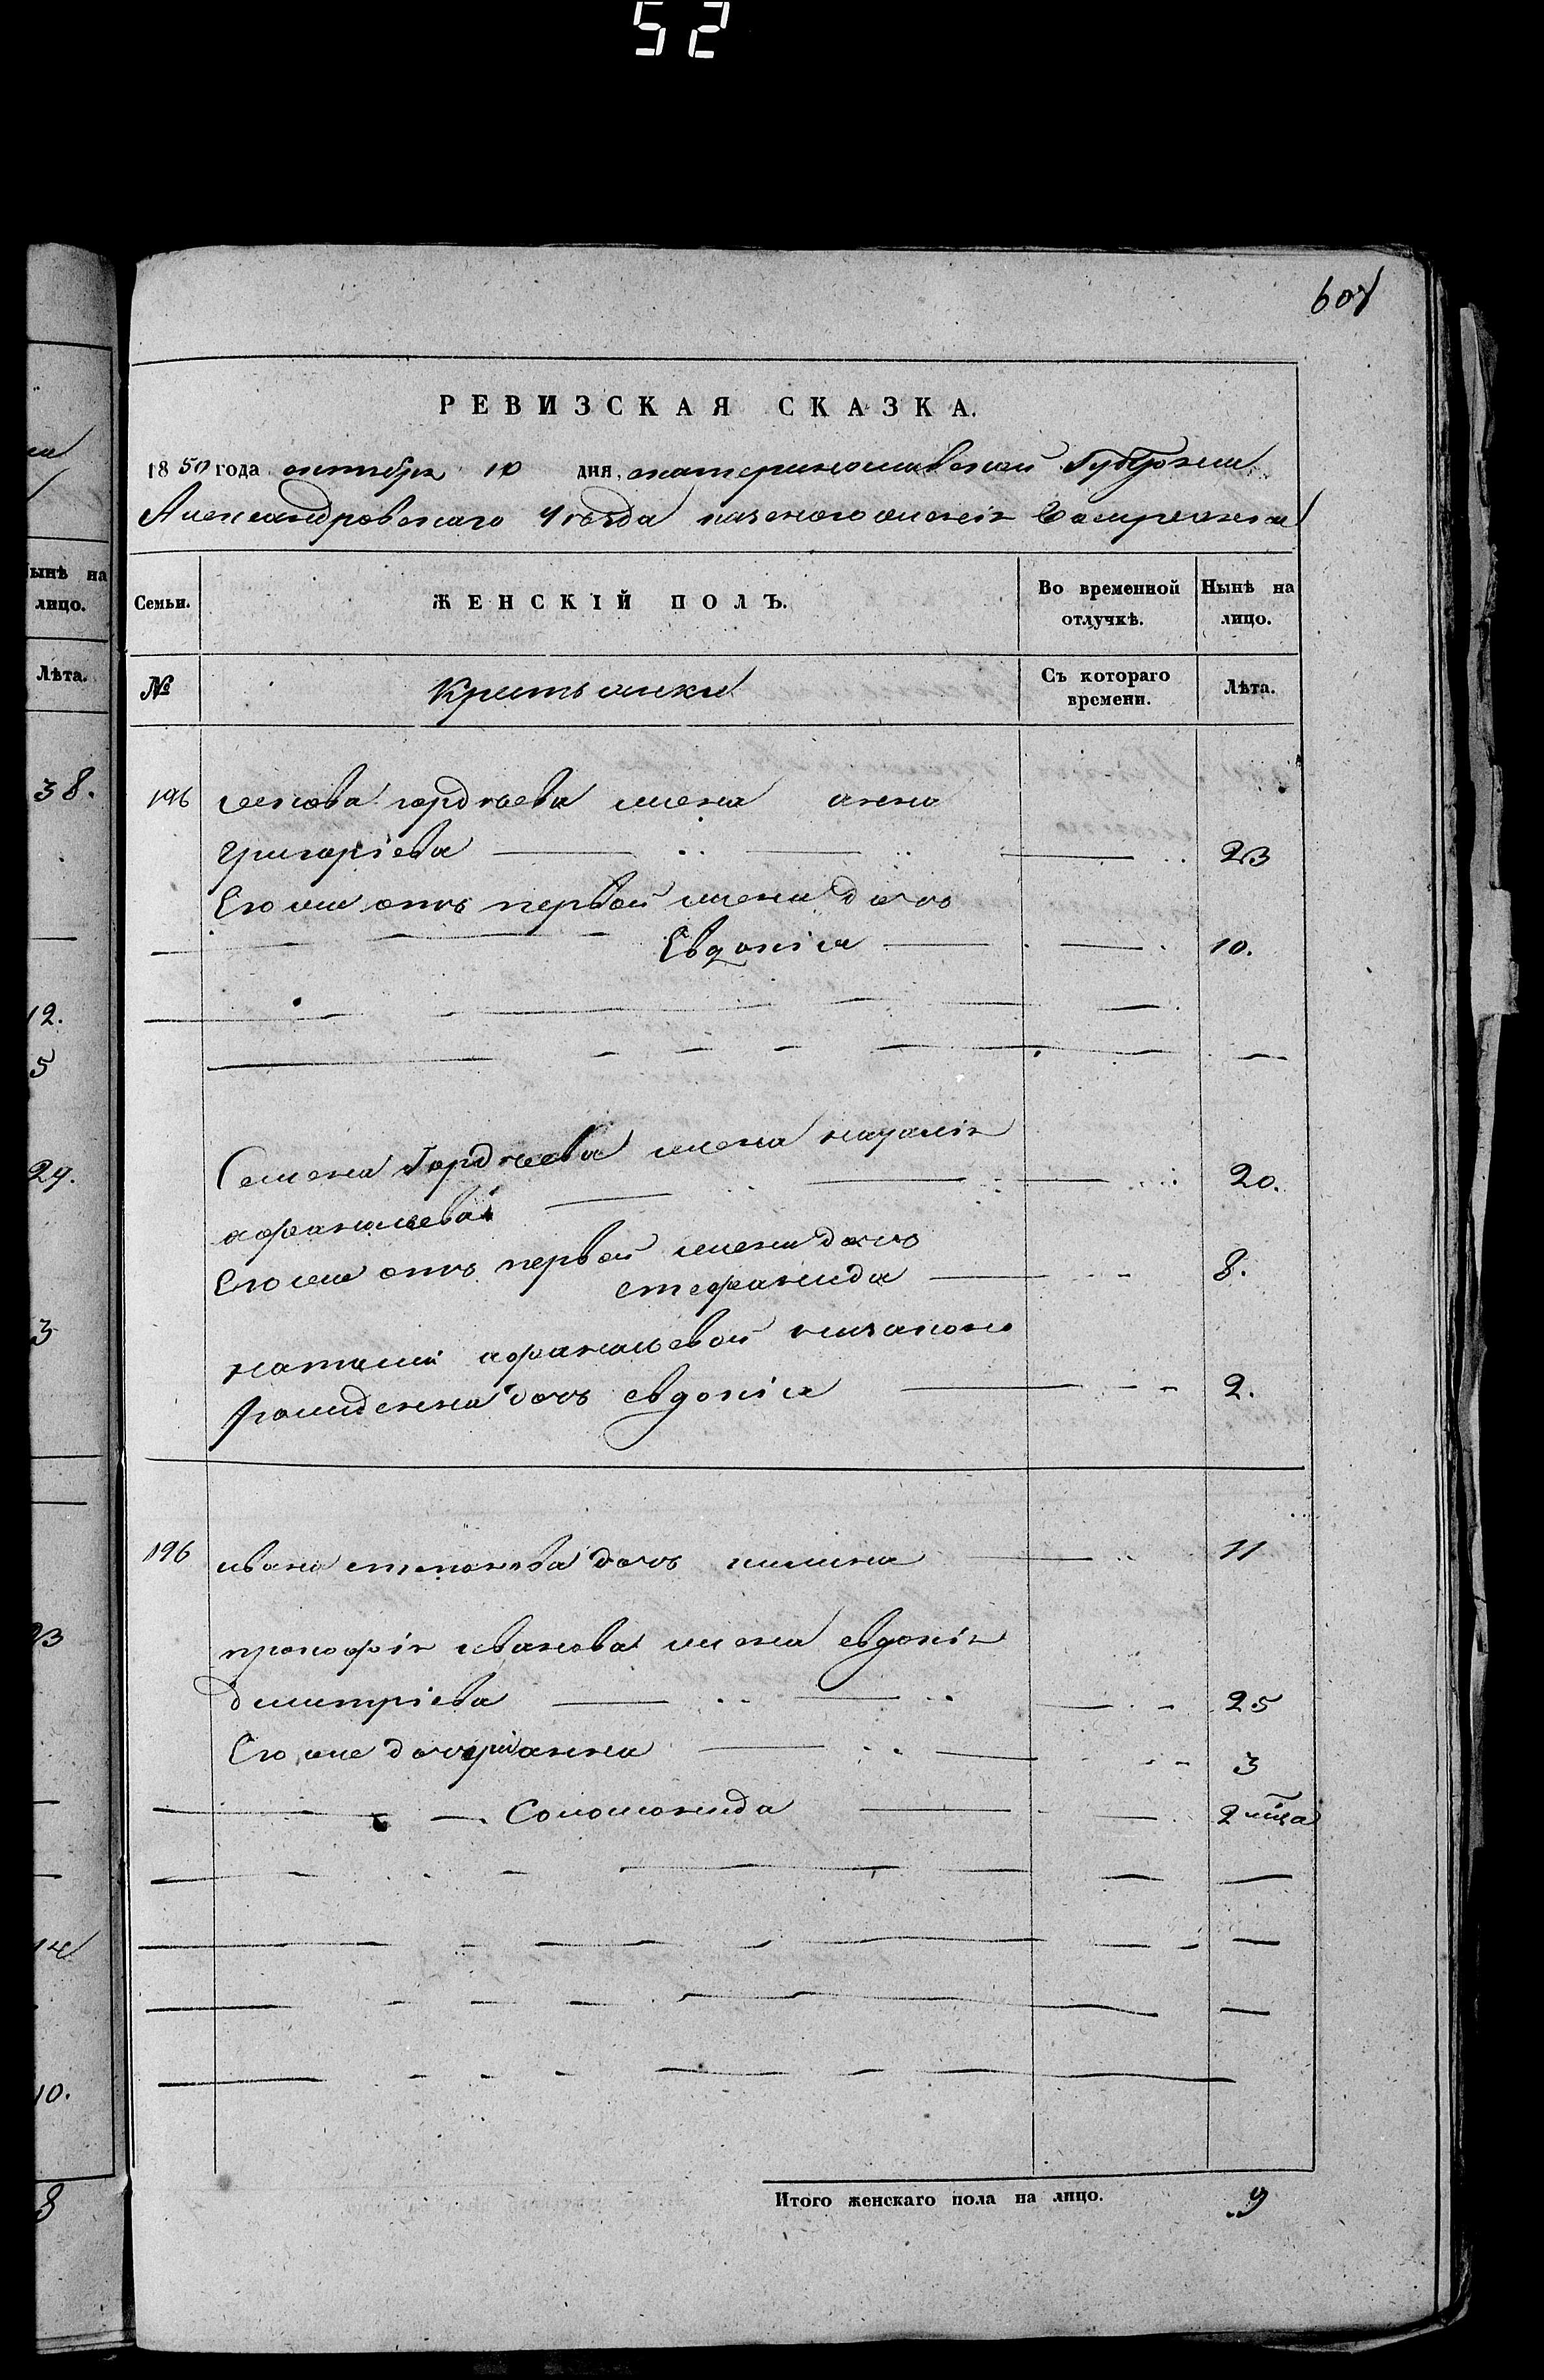 52
607
РЕВИЗСКАЯ СКАЗКА.
1850 года октября 10 дня, екатеринославской Губерніи
Александровскаго уѣзда казеного селенія
Семьи. ЖЕНСКІЙ ПОЛЪ. Во временной отлучкѣ. Ныпѣ на лицо.
№ Крестьянки Съ котораго времени. Лѣта.
196 гордѣева жена анна
григоріева 23
Его же отъ первой жены дочь
Евдокія 10.
Семена Гордѣева жена наталія 20.
афанасьева
Его же отъ первой жены дочь
стефанида 8.
наталіи афанасьевой незаконо
рожденна дочь евдокія 2.
196 ивана степанова дочь 11
прокофія иванова жена евдокія
дмитріева 25
Его же дочери анна 3
Соломонида 2 мца
Итого женскаго пола на лицо. 9
ынѣ на
лицо.
Лѣта.
38.
12.
5
29.
3
23
14
10.
8